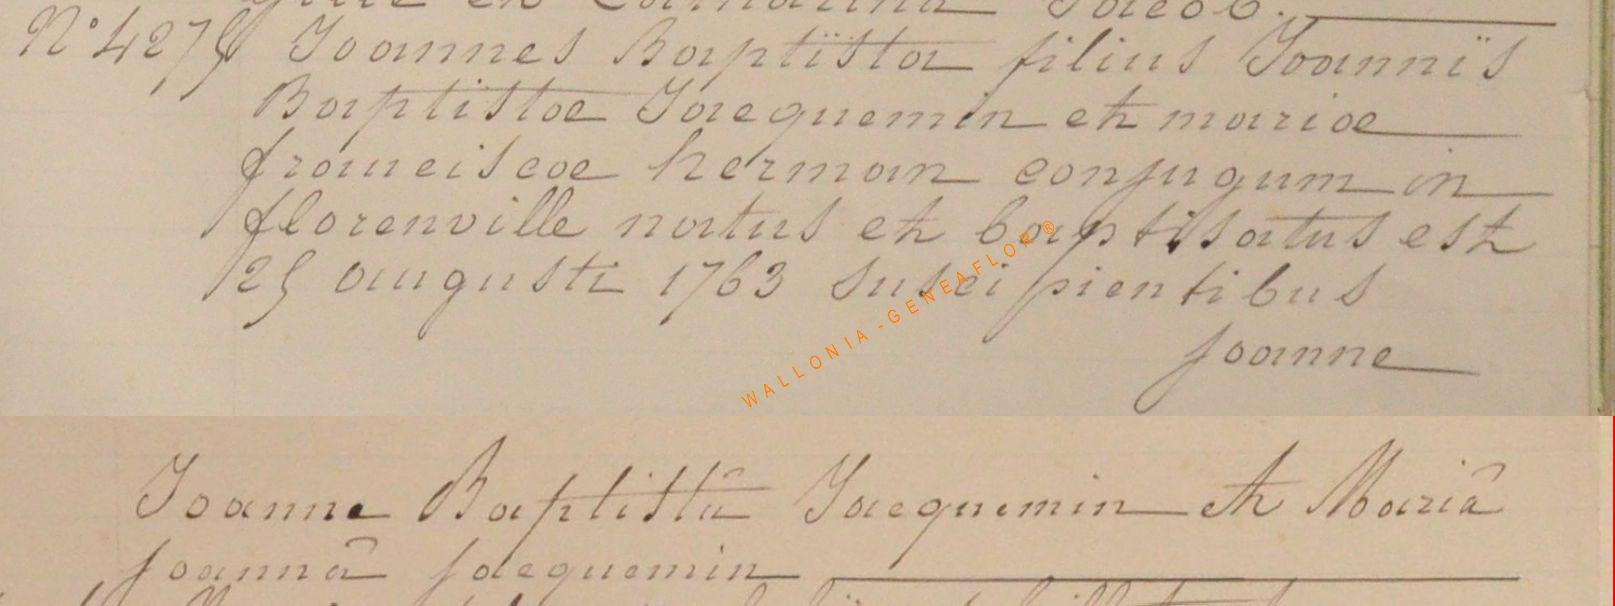 en Catharina Jacob.
N° 4275 Joannes Baptista filius Joannis
Baptistae Jacquemin et mariae
franciscae herman conjugum in
florenville natus et baptisatus est
25 augusti 1763 suscipientibus
joanne
WALLONIA-GENEAFLOR®
Joanne Baptistâ Jacquemin et Mariâ
joannâ jacquemin